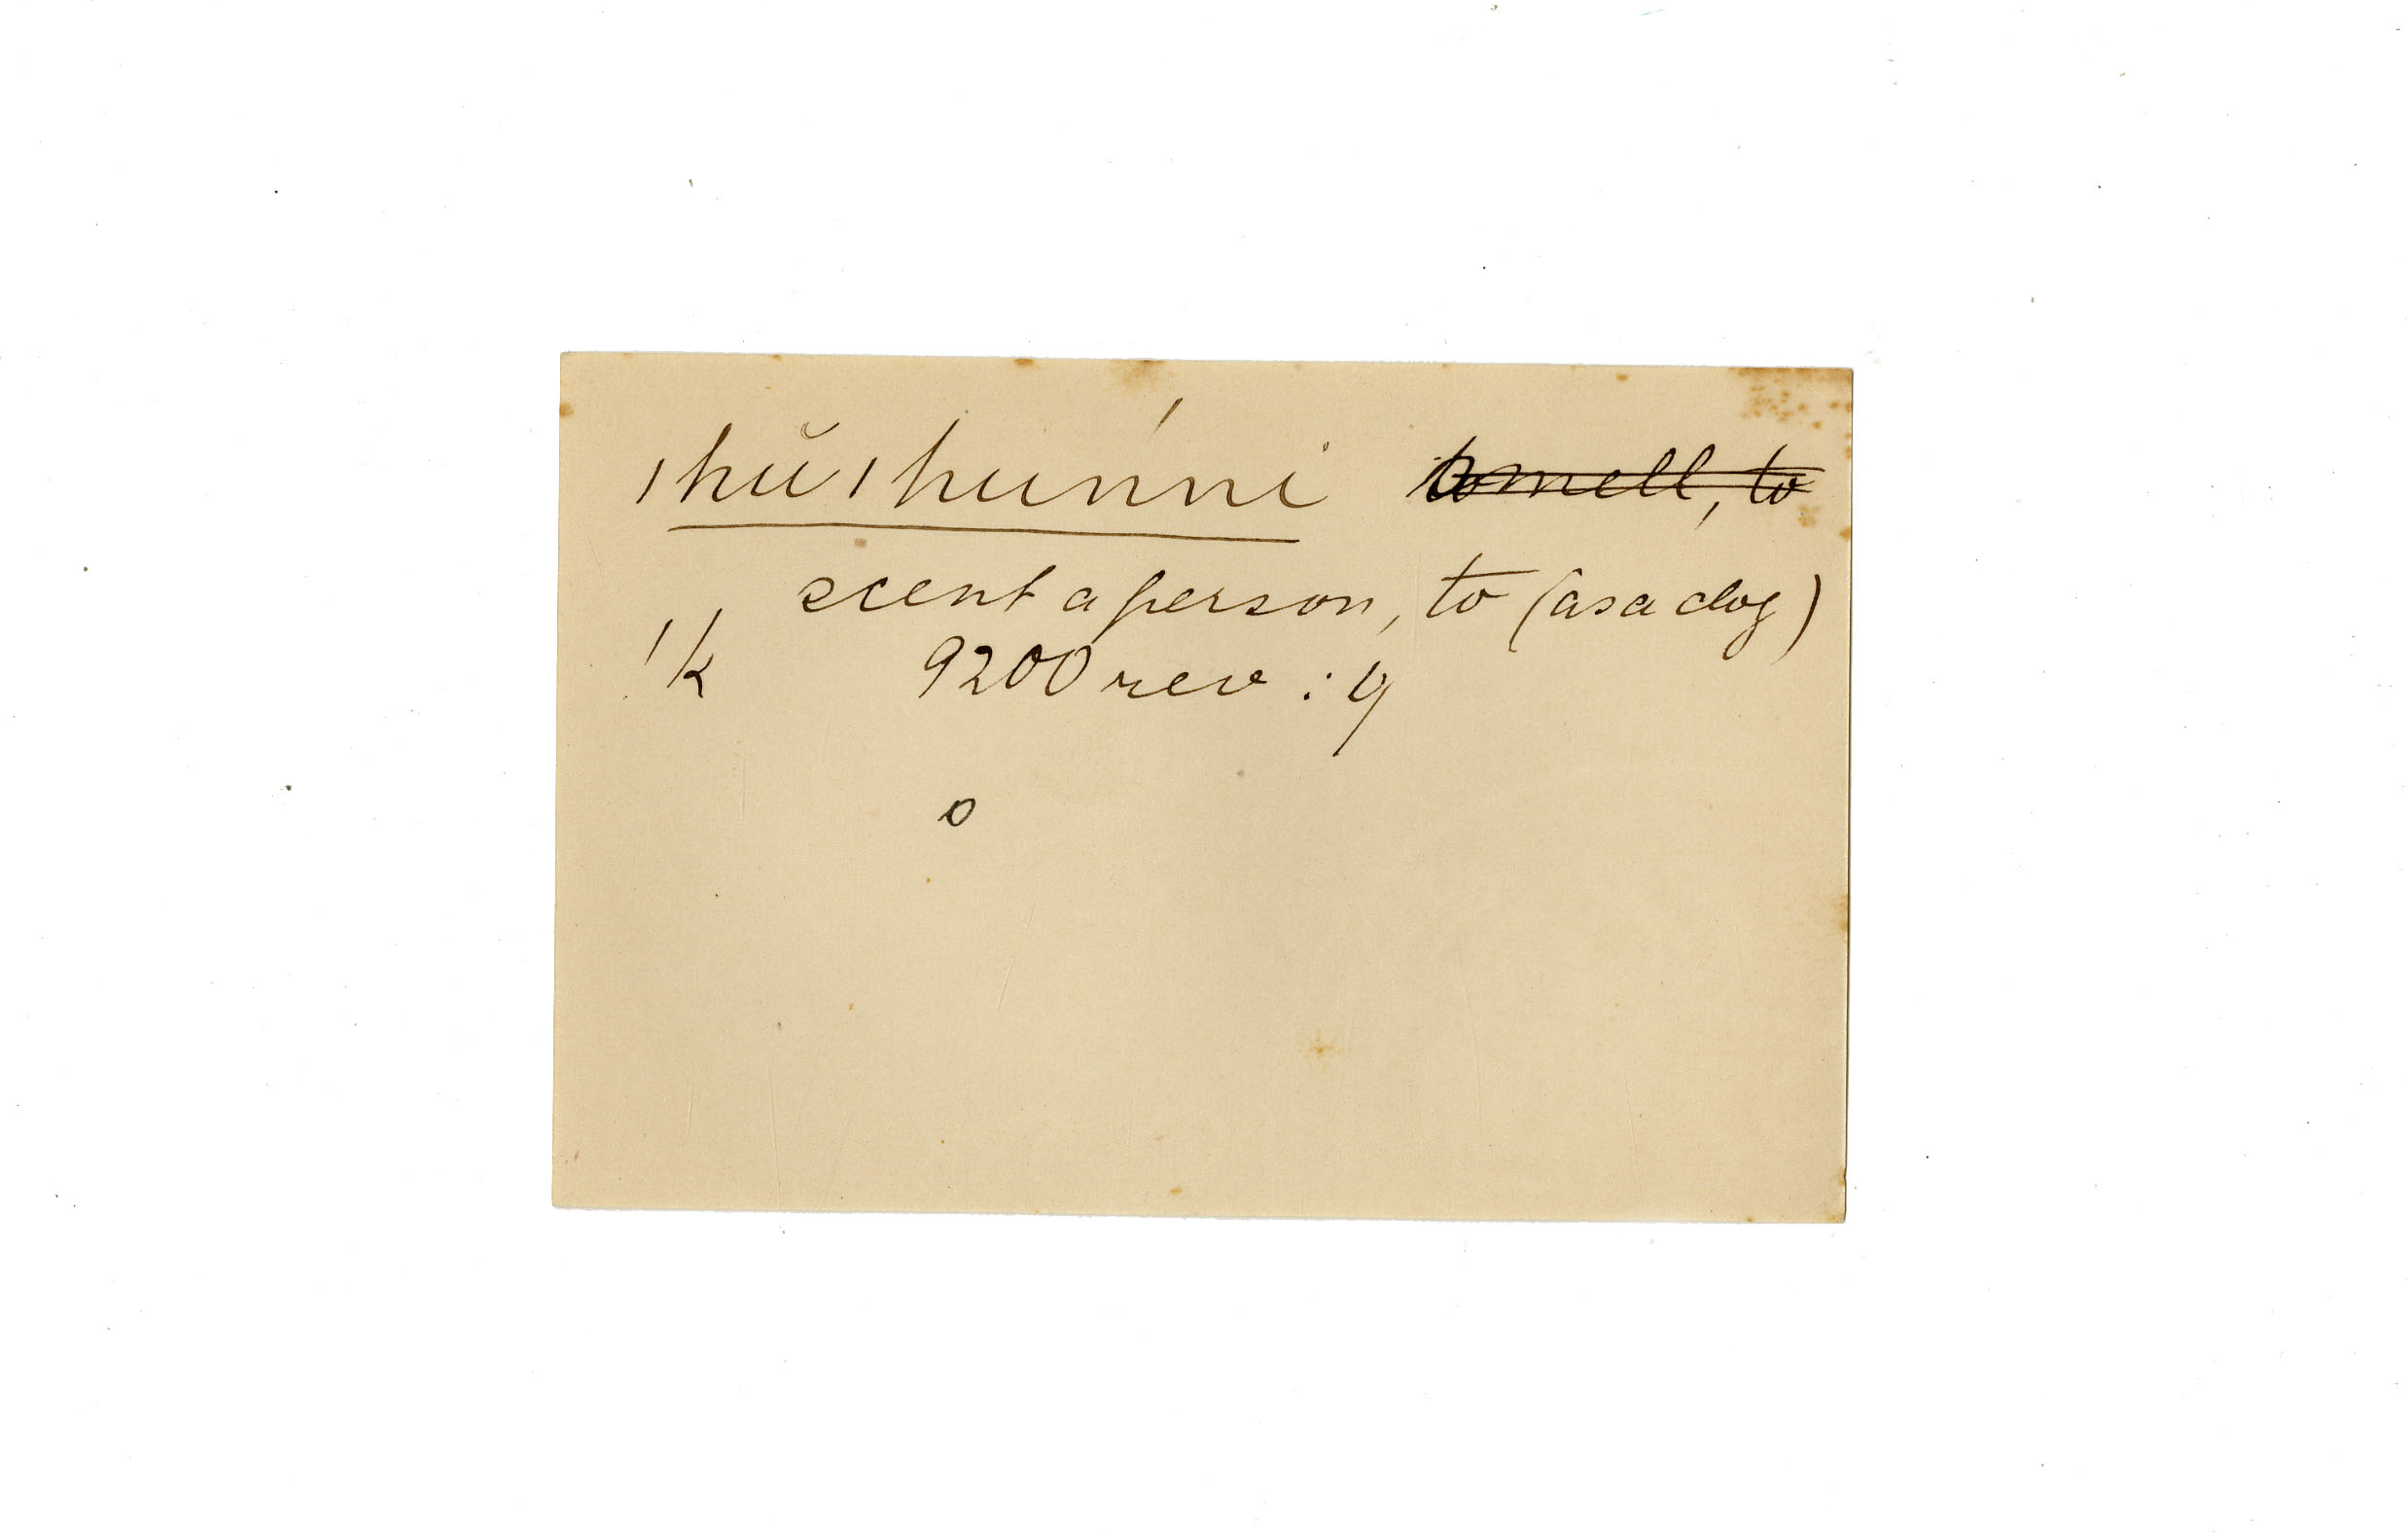 ǀhŭǀhuńni ~~smell, to~~
scent a person, to (as a dog)
ǀk 9200 rev : y
o